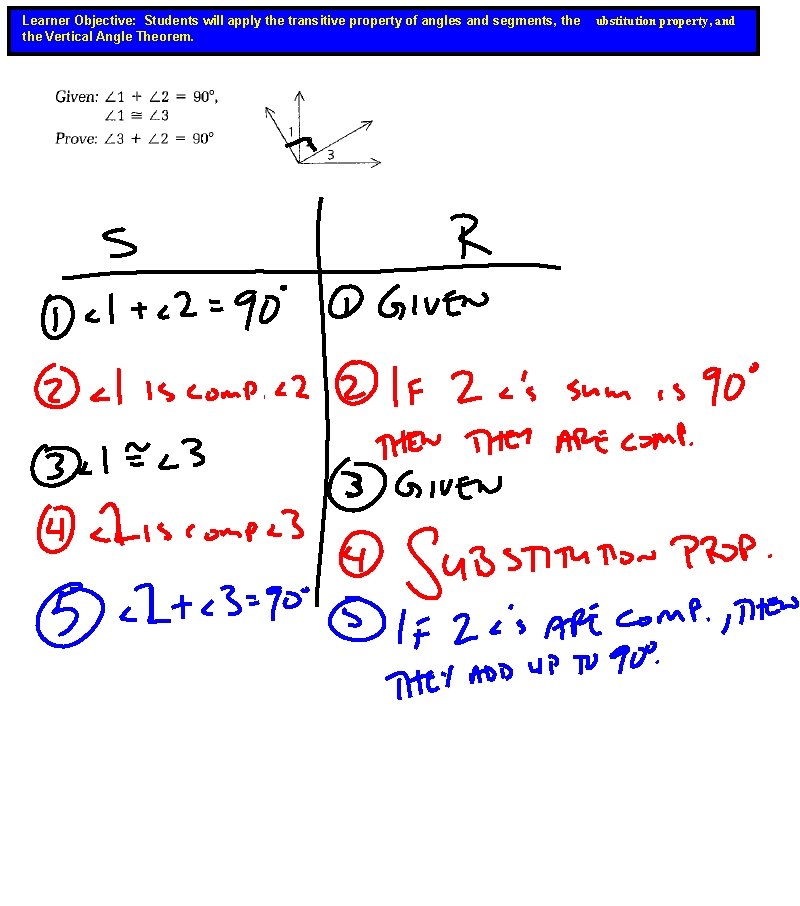 Learner Objective: Students will apply the transitive property of angles and segments, the ubstitution property, and
the Vertical Angle Theorem.
Given: ∠1 + ∠2 = 90°,
∠1 ≅ ∠3
Prove: ∠3 + ∠2 = 90°
1
3
S R
① ∠1 + ∠2 = 90° ① GIVEN
② ∠1 IS COMP. ∠2 ② IF 2 ∠'S SUM IS 90°
THEN THEY ARE COMP.
③ ∠1 ≅ ∠3 ③ GIVEN
④ ∠2 IS COMP ∠3 ④ SUBSTITUTION PROP.
⑤ ∠2 + ∠3 = 90° ⑤ IF 2 ∠'S ARE COMP., THEN
THEY ADD UP TO 90°.